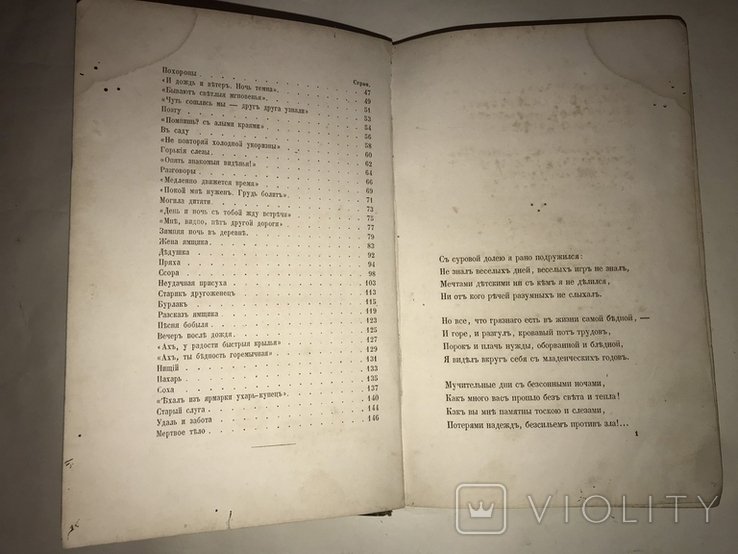 Стран.
Похороны 47
«И дождь и вѣтеръ. Ночь темна». 49
«Бываютъ свѣтлыя мгновенья». 51
«Чуть сошлись мы — другъ друга узнали» 53
Поэту 54
«Помнишь? съ алыми краями» 56
Въ саду 58
«Не повторяй холодной укоризны» 60
Горькія слезы. 62
«Опять знакомыя видѣнья!» 64
Разговоры 66
«Медленно движется время» 69
«Покой мнѣ нуженъ. Грудь болитъ». 71
Могила дитяти 73
«День и ночь съ тобой жду встрѣчи» 75
«Мнѣ, видно, нѣтъ другой дороги» 77
Зимняя ночь въ деревнѣ. 79
Жена ямщика. 83
Дѣдушка 92
Пряха 94
Ссора 98
Неудачная присуха 103
Старикъ другоженецъ 113
Бурлакъ 115
Разсказъ ямщика 119
Пѣсня бобыля 123
Вечеръ послѣ дождя. 125
«Ахъ, у радости быстрыя крылья» 127
«Ахъ, ты бѣдность горемычная» 129
Нищій 131
Пахарь 133
Соха 135
«Ѣхалъ изъ ярмарки ухарь-купецъ». 137
Старый слуга 140
Удаль и забота 144
Мертвое тѣло 146
Съ суровой долею я рано подружился:
Не зналъ веселыхъ дней, веселыхъ игръ не зналъ,
Мечтами дѣтскими ни съ кѣмъ я не дѣлился,
Ни отъ кого рѣчей разумныхъ не слыхалъ.
Но все, что грязнаго есть въ жизни самой бѣдной, —
И горе, и разгулъ, кровавый потъ трудовъ,
Порокъ и плачъ нужды, оборванной и блѣдной,
Я видѣлъ вкругъ себя съ младенческихъ годовъ.
Мучительные дни съ безсонными ночами,
Какъ много васъ прошло безъ свѣта и тепла!
Какъ вы мнѣ памятны тоскою и слезами,
Потерями надеждъ, безсильемъ противъ зла!...
1
VIOLITY